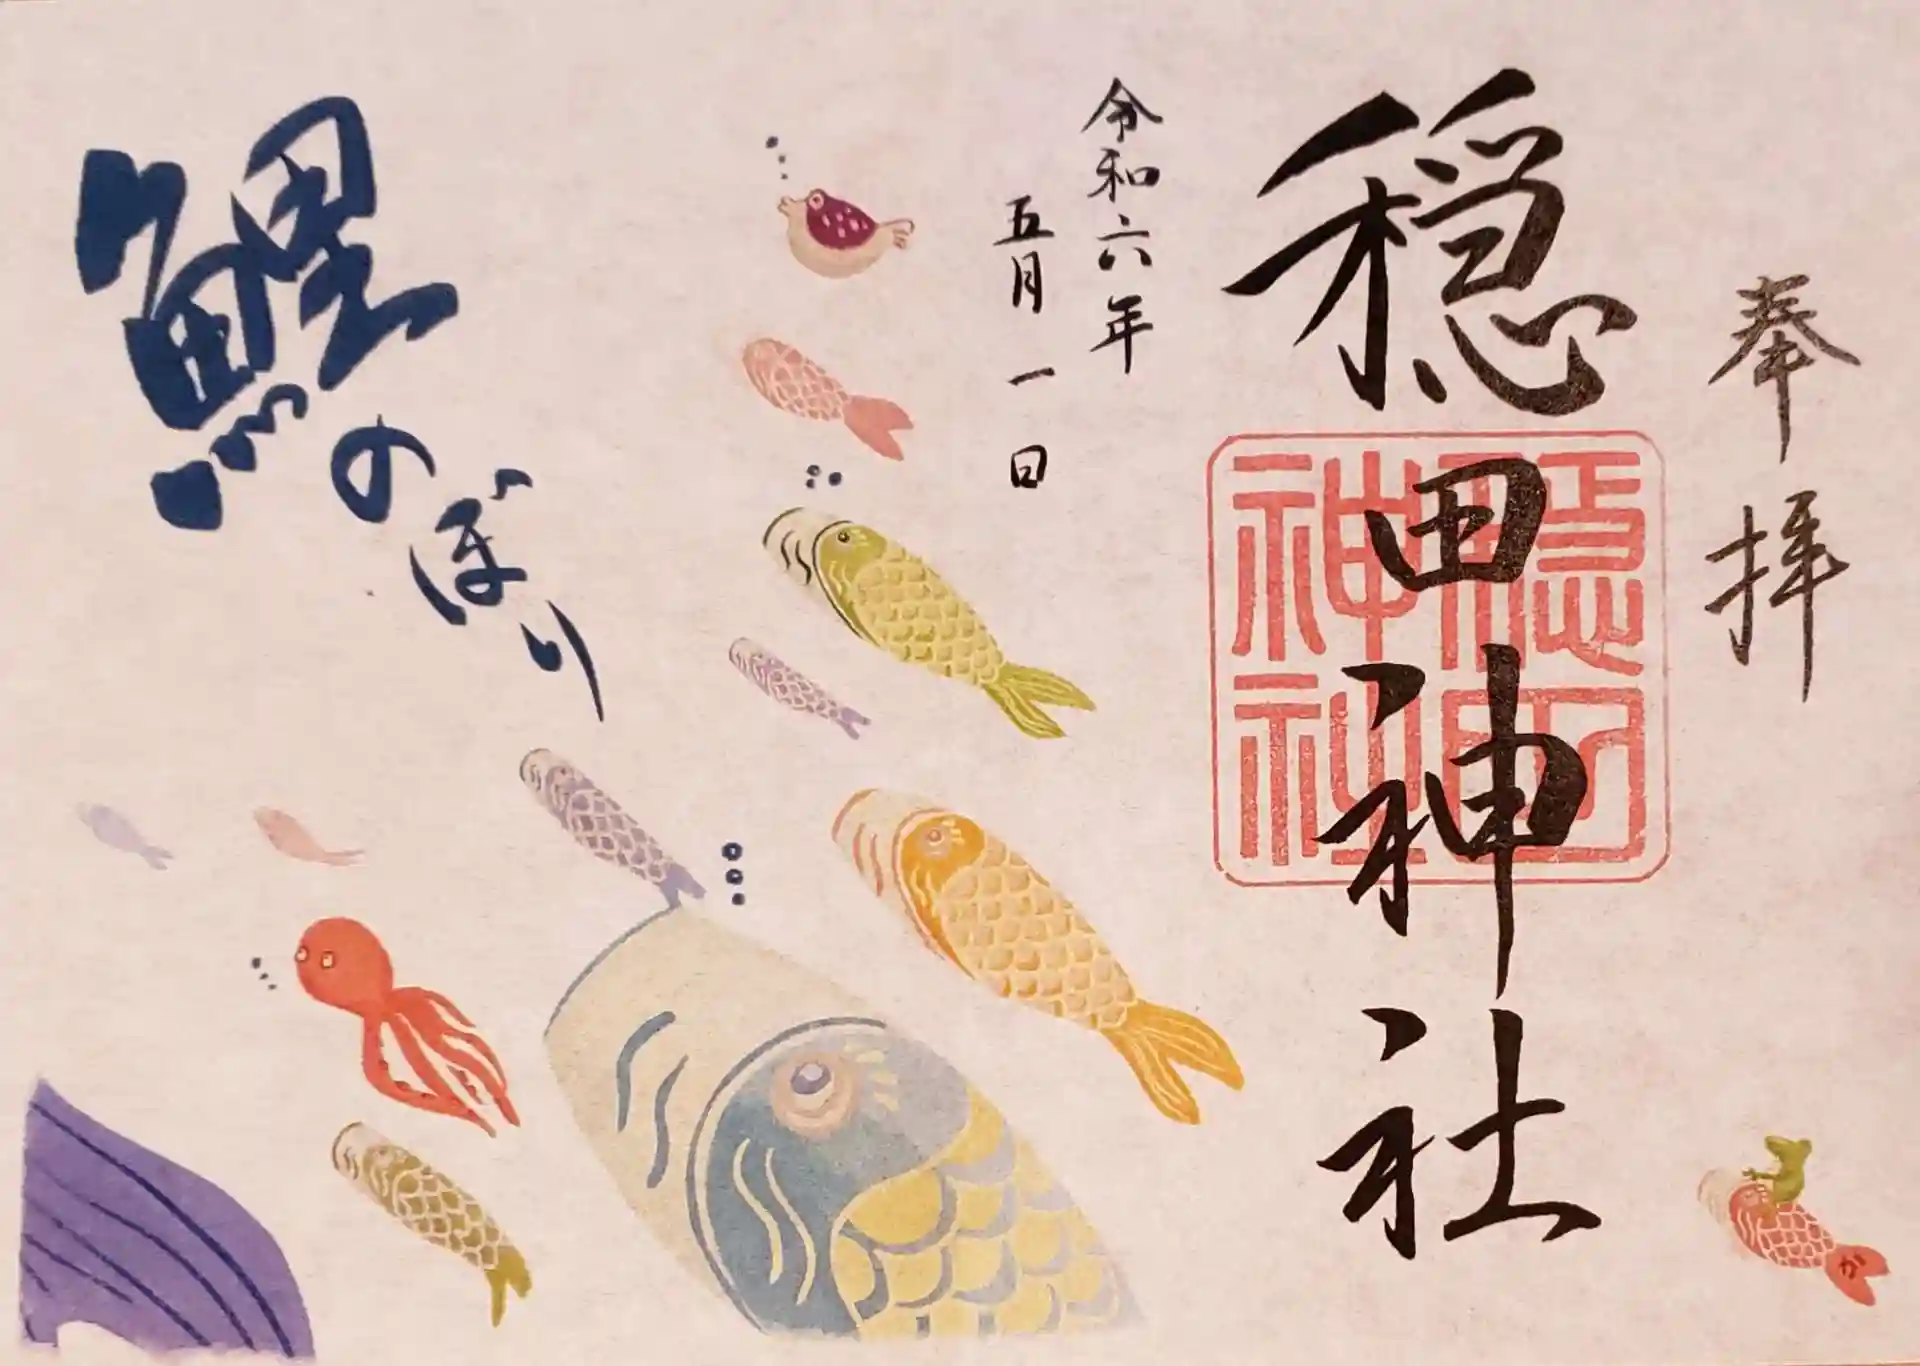 奉拝
穏田神社
穏田神社
令和六年
五月一日
鯉のぼり
か